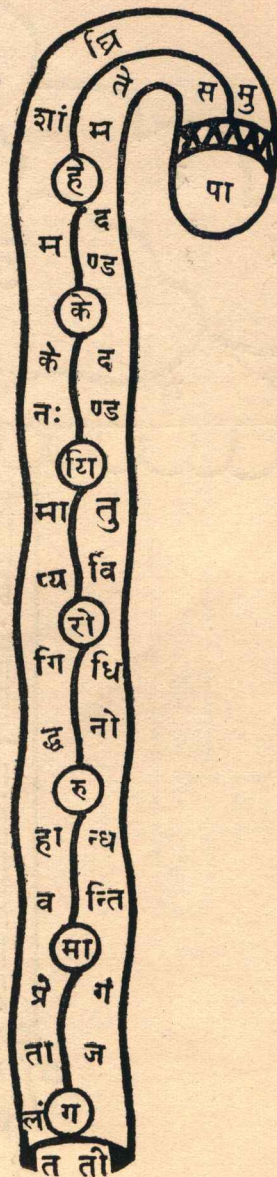 घ्रि
ते स मु
शां म
पा
हे
म द
ण्ड
के
के द
नः ण्ड
यि
मा तु
प्य र्वि
रो
गि धि
द्ध नो
रु
हा न्ध
व न्ति
मा
प्रे र्गं
ता ज
लं ग
त ती